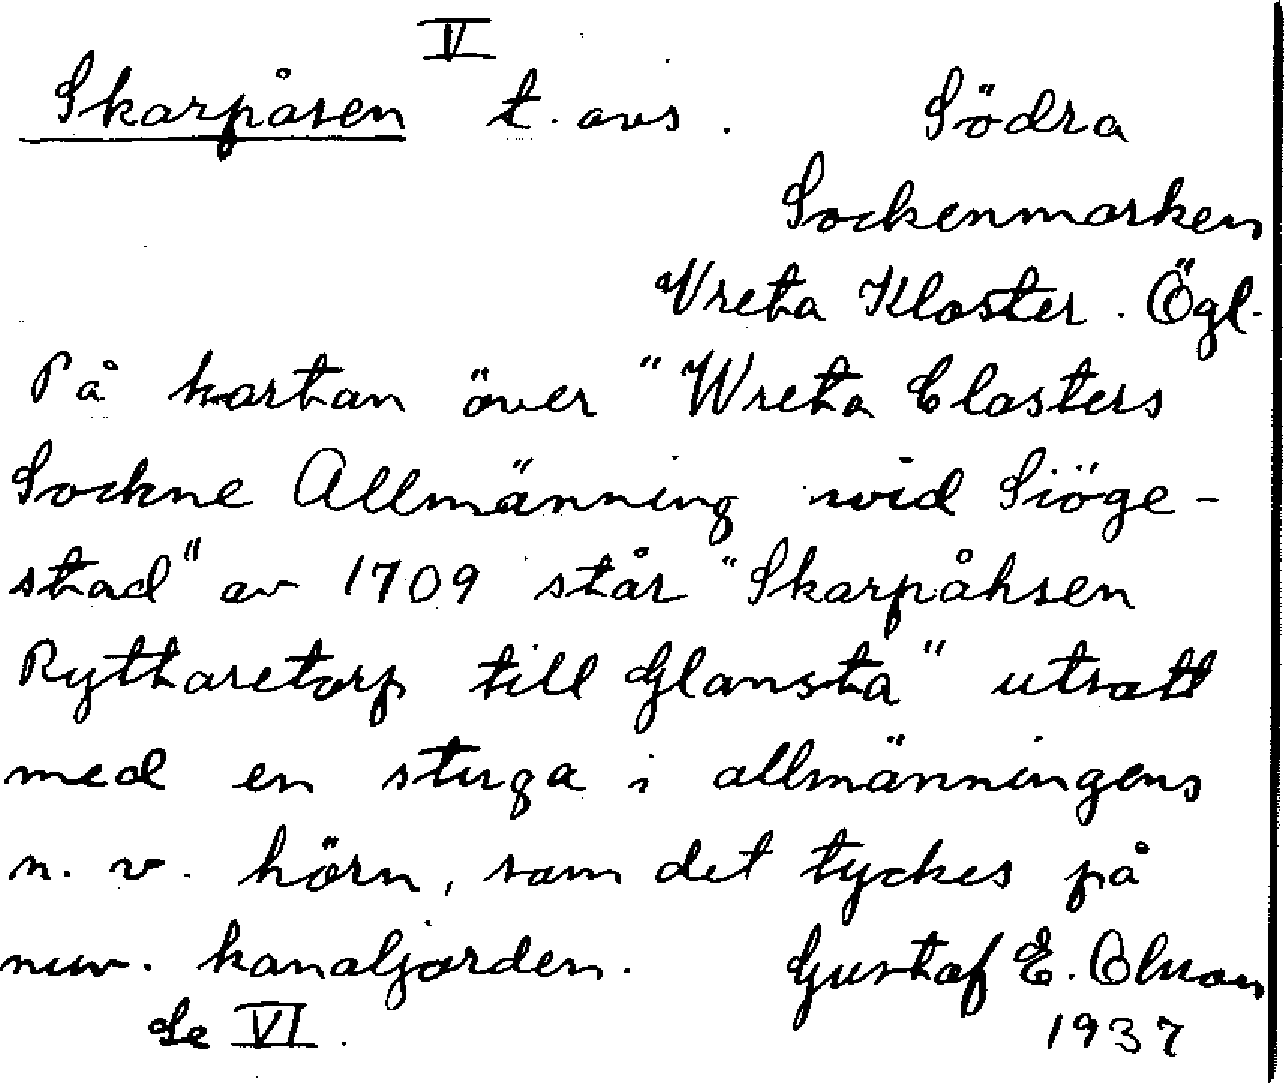 V
Skarpåsen t. avs. Södra
Sockenmarken
Vreta Kloster. Ögl.
På kartan över "Wreta Closters
Sockne Allmänning wid Siöge-
stad" av 1709 står "Skarpåhsen
Ryttaretorp till Glansta" utsatt
med en stuga i allmänningens
n. v. hörn, som det tyckes på
nuv. kanaljorden. Gustaf E. Olsson
Se VI. 1937